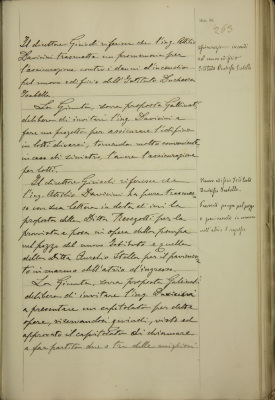 269
Il direttore Girardi riferisce che l'ing. Attilio
Davicini trasmette un promemoria per
l'assicurazione contro i danni d'incendio
pel nuovo edificio dell'Istituto Duchessa
Isabella.
La Giunta, sovra proposta
delibera di invitare l'ing. Davicini a
fare un progetto per assicurare l'edificio
in lotti diversi, tornando molto conveniente
in caso di sinistri, l'avere l'assicurazione
per lotti.
Il direttore riferisce che
l'ing. Attilio Davicini ha pure trasmes-
so con sua lettera in data di ieri la
proposta della Ditta per la
provvista e posa in opera della pompa
nel pozzo del nuovo Istituto e quella
della Ditta Aurelio Stella per il pavimen-
to in marmo dell'atrio d'ingresso.
La Giunta, sovra proposta
delibera di invitare l'ing. Davicini
a presentare un capitolato per dette
opere, riservandosi quindi, visto ed
approvato il capitolato di chiamare
a far partito due o tre delle migliori
Assicurazione incendi
al nuovo edificio
Istituto Duchessa Isabella
Nuovo edificio Istituto
Duchessa Isabella.
pompa pel pozzo
e pavimento in marmo
nell'atrio d'ingresso.